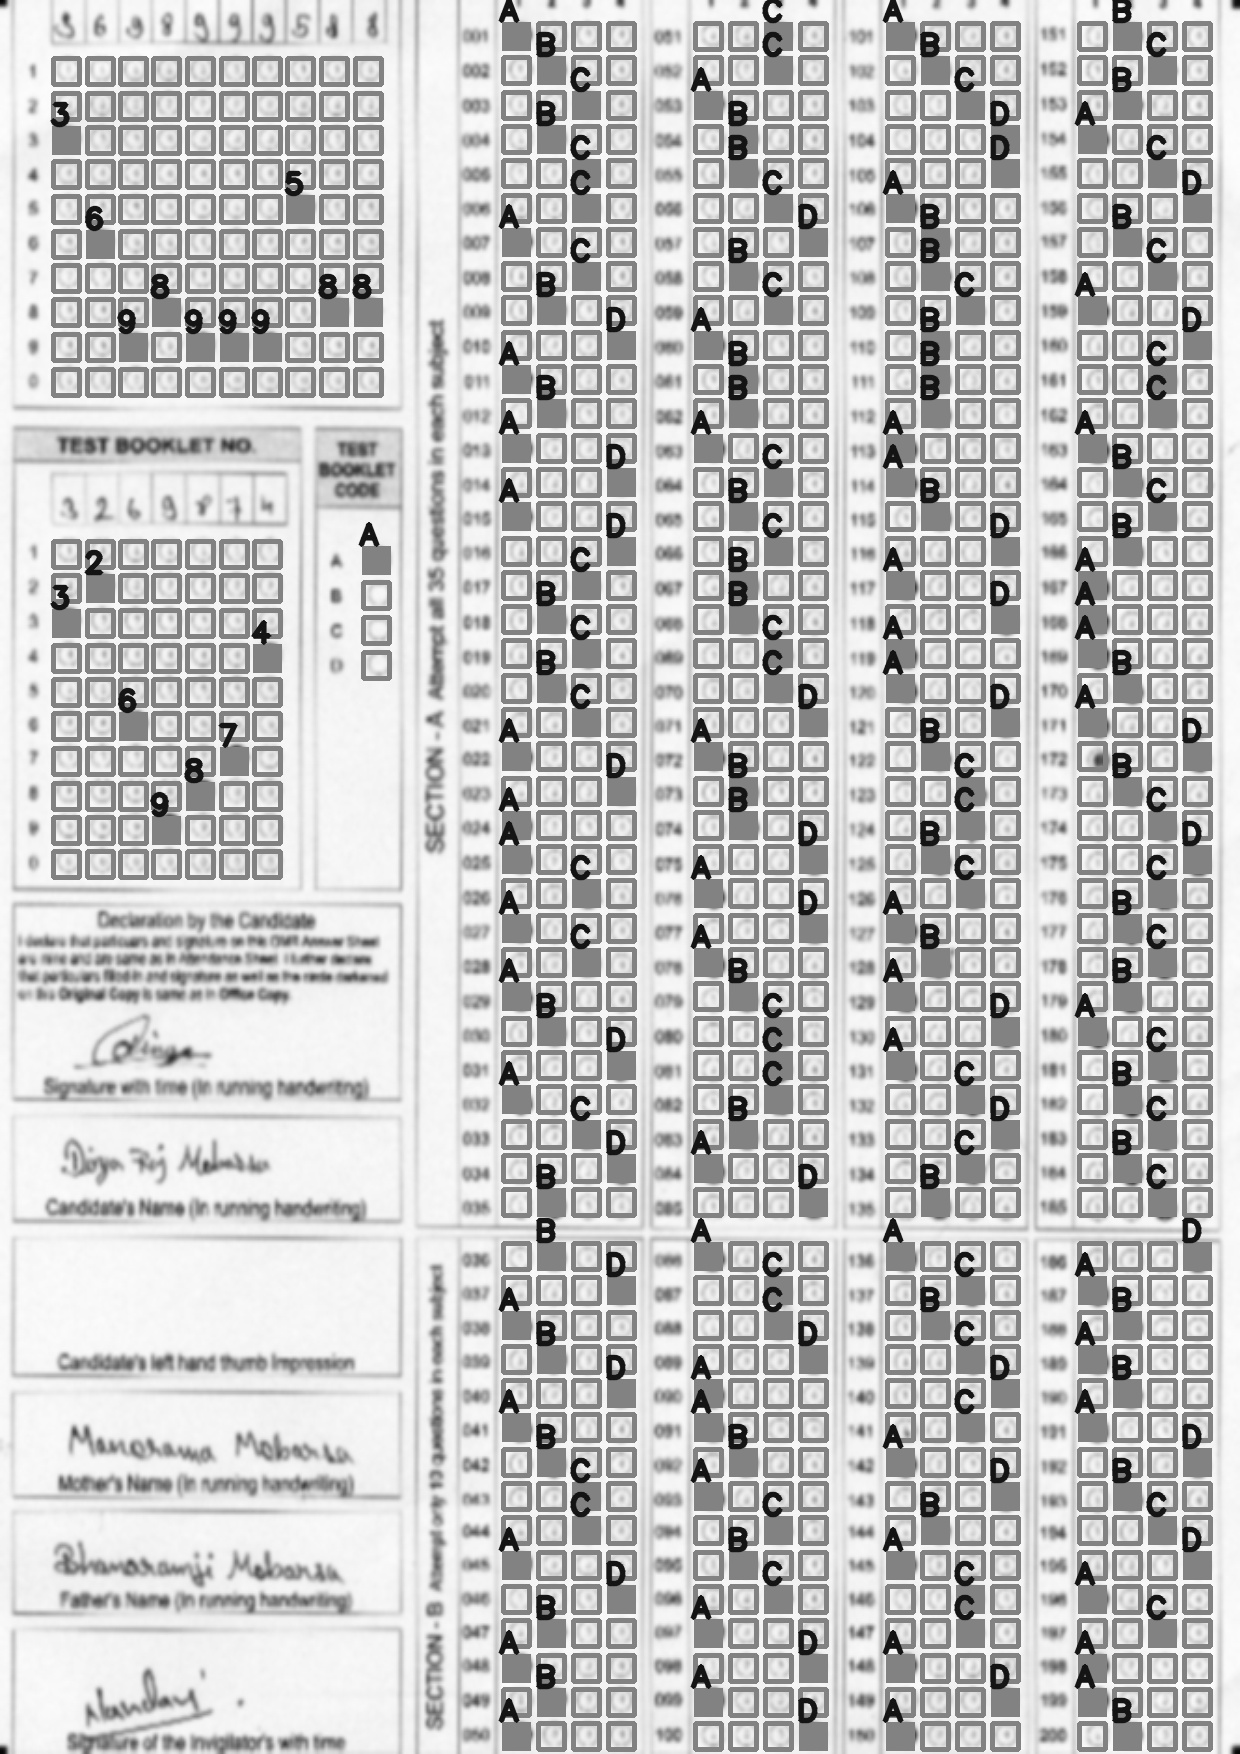 3 6 9 8 9 9 9 5 8 8
1
2
3 3
4
5 5
6 6
7
8 8 8 8
9 9 9 9 9
0
TEST BOOKLET NO.
3 2 6 9 8 7 4
1
2 2
3 3
4 4
5
6 6
7 7
8 8
9 9
0
TEST BOOKLET CODE
A A
B
C
D
Declaration by the Candidate
I declare that particulars and signature on this OMR Answer Sheet
are mine and are same as in Attendance Sheet. I further declare
that particulars filled-in and signature as well as the circle darkened
on this Original Copy is same as in Office Copy.
Signature with time (In running handwriting)
Candidate's Name (In running handwriting)
Candidate's left hand thumb Impression
Manorama Mobarsa
Mother's Name (In running handwriting)
Father's Name (In running handwriting)
Signature of the Invigilator's with time
SECTION - A Attempt all 35 questions in each subject
001 A 051 C 101 A 151 B
002 B 052 C 102 B 152 C
003 C 053 A 103 C 153 B
004 B 054 B 104 D 154 A
005 C 055 B 105 D 155 C
006 C 056 C 106 A 156 D
007 A 057 D 107 B 157 B
008 C 058 B 108 B 158 C
009 B 059 C 109 C 159 A
010 D 060 A 110 B 160 D
011 A 061 B 111 B 161 C
012 B 062 B 112 B 162 C
013 A 063 A 113 A 163 A
014 D 064 C 114 A 164 B
015 A 065 B 115 B 165 C
016 D 066 C 116 D 166 B
017 C 067 B 117 A 167 A
018 B 068 B 118 D 168 A
019 C 069 C 119 A 169 A
020 B 070 C 120 A 170 B
021 C 071 D 121 D 171 A
022 A 072 A 122 B 172 D
023 D 073 B 123 C 173 B
024 A 074 B 124 C 174 C
025 A 075 D 125 B 175 D
026 C 076 A 126 C 176 C
027 A 077 D 127 A 177 B
028 C 078 A 128 B 178 C
029 A 079 B 129 A 179 B
030 B 080 C 130 D 180 A
031 D 081 C 131 A 181 C
032 A 082 C 132 C 182 B
033 C 083 B 133 D 183 C
034 D 084 A 134 C 184 B
035 B 085 D 135 B 185 C
SECTION - B Attempt only 10 questions in each subject
036 B 086 A 136 A 186 D
037 D 087 C 137 C 187 A
038 A 088 C 138 B 188 B
039 B 089 D 139 C 189 A
040 D 090 A 140 D 190 B
041 A 091 A 141 C 191 A
042 B 092 B 142 A 192 D
043 C 093 A 143 D 193 B
044 C 094 C 144 B 194 C
045 A 095 B 145 A 195 D
046 D 096 C 146 C 196 A
047 B 097 A 147 C 197 C
048 A 098 D 148 A 198 A
049 B 099 A 149 D 199 A
050 A 100 D 150 A 200 B